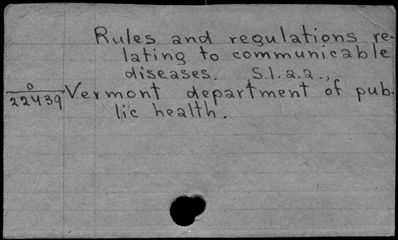 Rules and regulations re-
lating to communicable
diseases. S.l.a.a.,
0
22439
Vermont department of pub-
lic health.